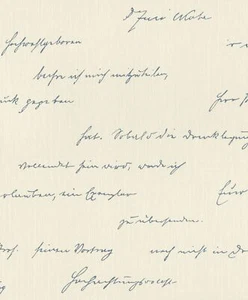 Hochwohlgeboren
beehre ich mich mitzuteilen,
ruck gegeben
hat. Sobald die Drucklegung
vollendet sein wird, werde ich
erlauben, ein Exemplar
zu übersenden.
Prof. seinen Vortrag noch nicht in Dr
Hochachtungsvollst